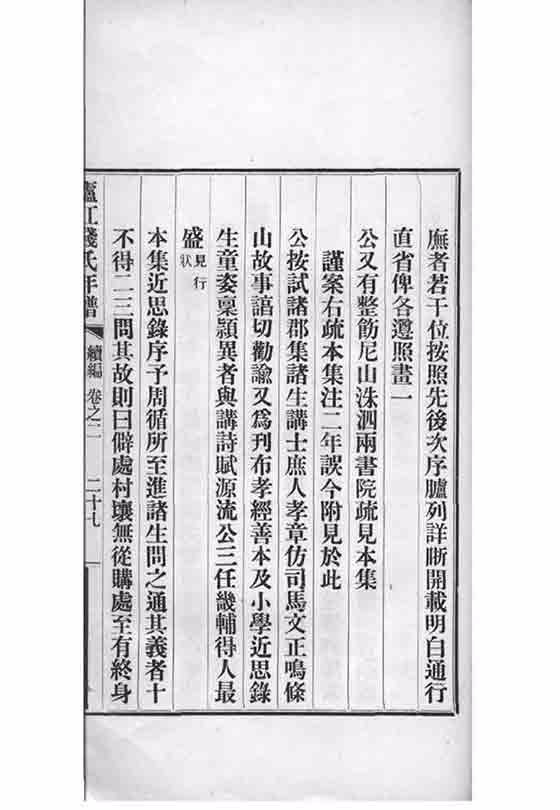 廡者若干位按照先後次序臚列詳晰開載明白通行
直省俾各遵照畫一
公又有整飭尼山洙泗兩書院疏見本集
謹案右疏本集注二年誤今附見於此
公按試諸郡集諸生講士庶人孝章仿司馬文正鳴條
山故事諄切勸諭又爲刋布孝經善本及小學近思錄
生童姿稟穎異者與講詩賦源流公三任畿輔得人最
盛見行狀
本集近思錄序予周循所至進諸生問之通其義者十
不得二三問其故則曰僻處村壤無從購處至有終身
廬江錢氏年譜 續編 卷之二 二十七